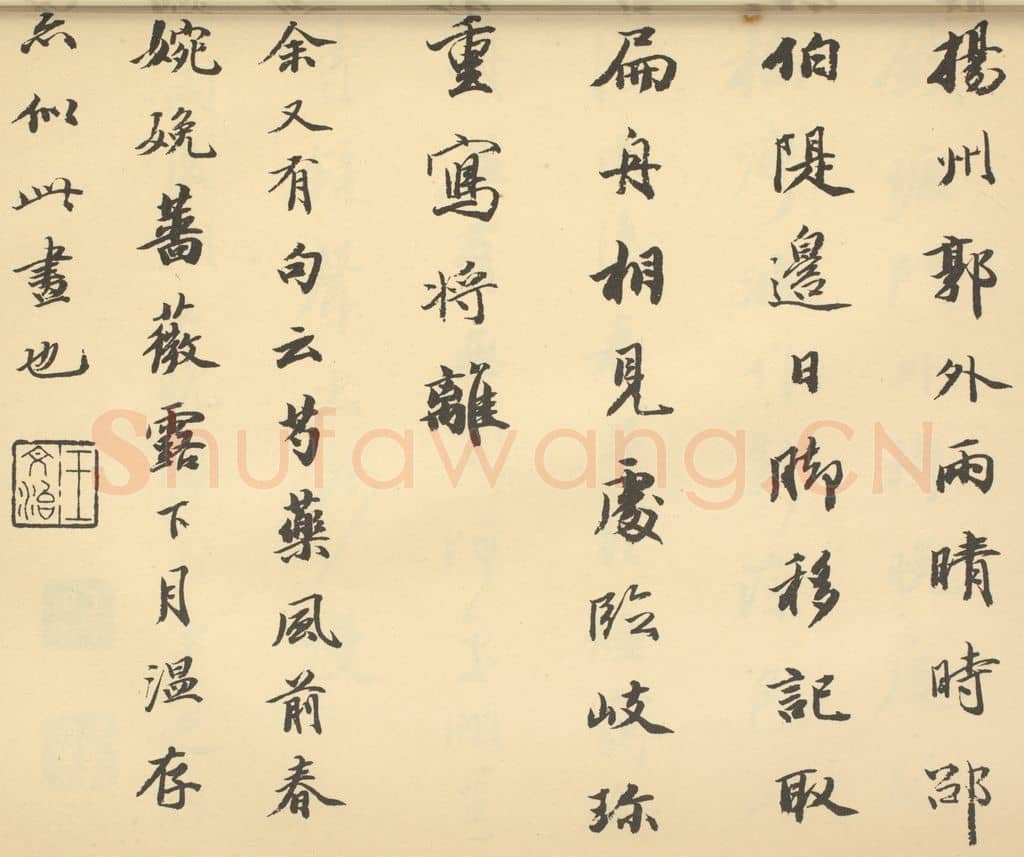 揚州郭外雨晴時邵
伯隄邊日脚移記取
扁舟相見處臨岐珎
重寫將離
余又有句云芍藥風前春
婉娩薔薇露下月温存
亦似此畫也
王文治
Shufawang.CN